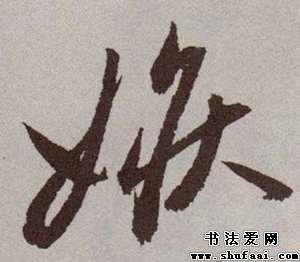 嫉
书法爱网
www.shufaai.com